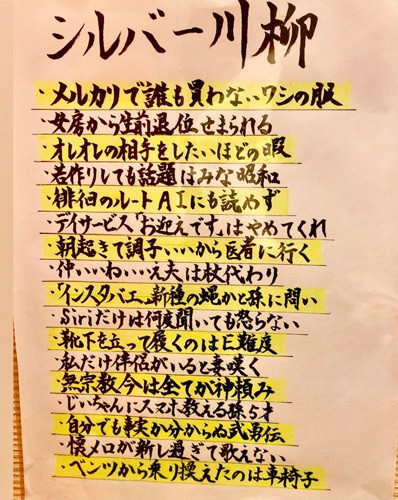 シルバー川柳
・メルカリで誰も買わないワシの服
・女房から生前退位せまられる
・オレオレの相手をしたいほどの暇
・若作りしても話題はみな昭和
・徘徊のルートAIにも読めず
・デイサービス「お迎えです」はやめてくれ
・朝起きて調子いいから医者に行く
・仲いいねいいえ夫は杖代わり
・「インスタバエ」新種の蝿かと孫に問い
・Siriだけは何度聞いても怒らない
・靴下を立って履くのはE難度
・私だけ伴侶がいると妻咲く
・無宗教今は全てが神頼み
・じいちゃんにスマホ教える孫5才
・自分でも事実か分からぬ武勇伝
・懐メロが新し過ぎて歌えない
・ベンツから乗り換えたのは車椅子